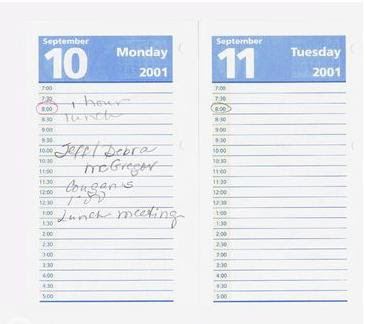 September
10
Monday
2001
7:00
7:30
8:00 1 hour
8:30 lunch
9:00
9:30
10:00 Jeff/Debra
10:30 McGregor
11:00
11:30
12:00
12:30
1:00 Lunch meeting
1:30
2:00
2:30
3:00
3:30
4:00
4:30
5:00
September
11
Tuesday
2001
7:00
7:30
8:00
8:30
9:00
9:30
10:00
10:30
11:00
11:30
12:00
12:30
1:00
1:30
2:00
2:30
3:00
3:30
4:00
4:30
5:00